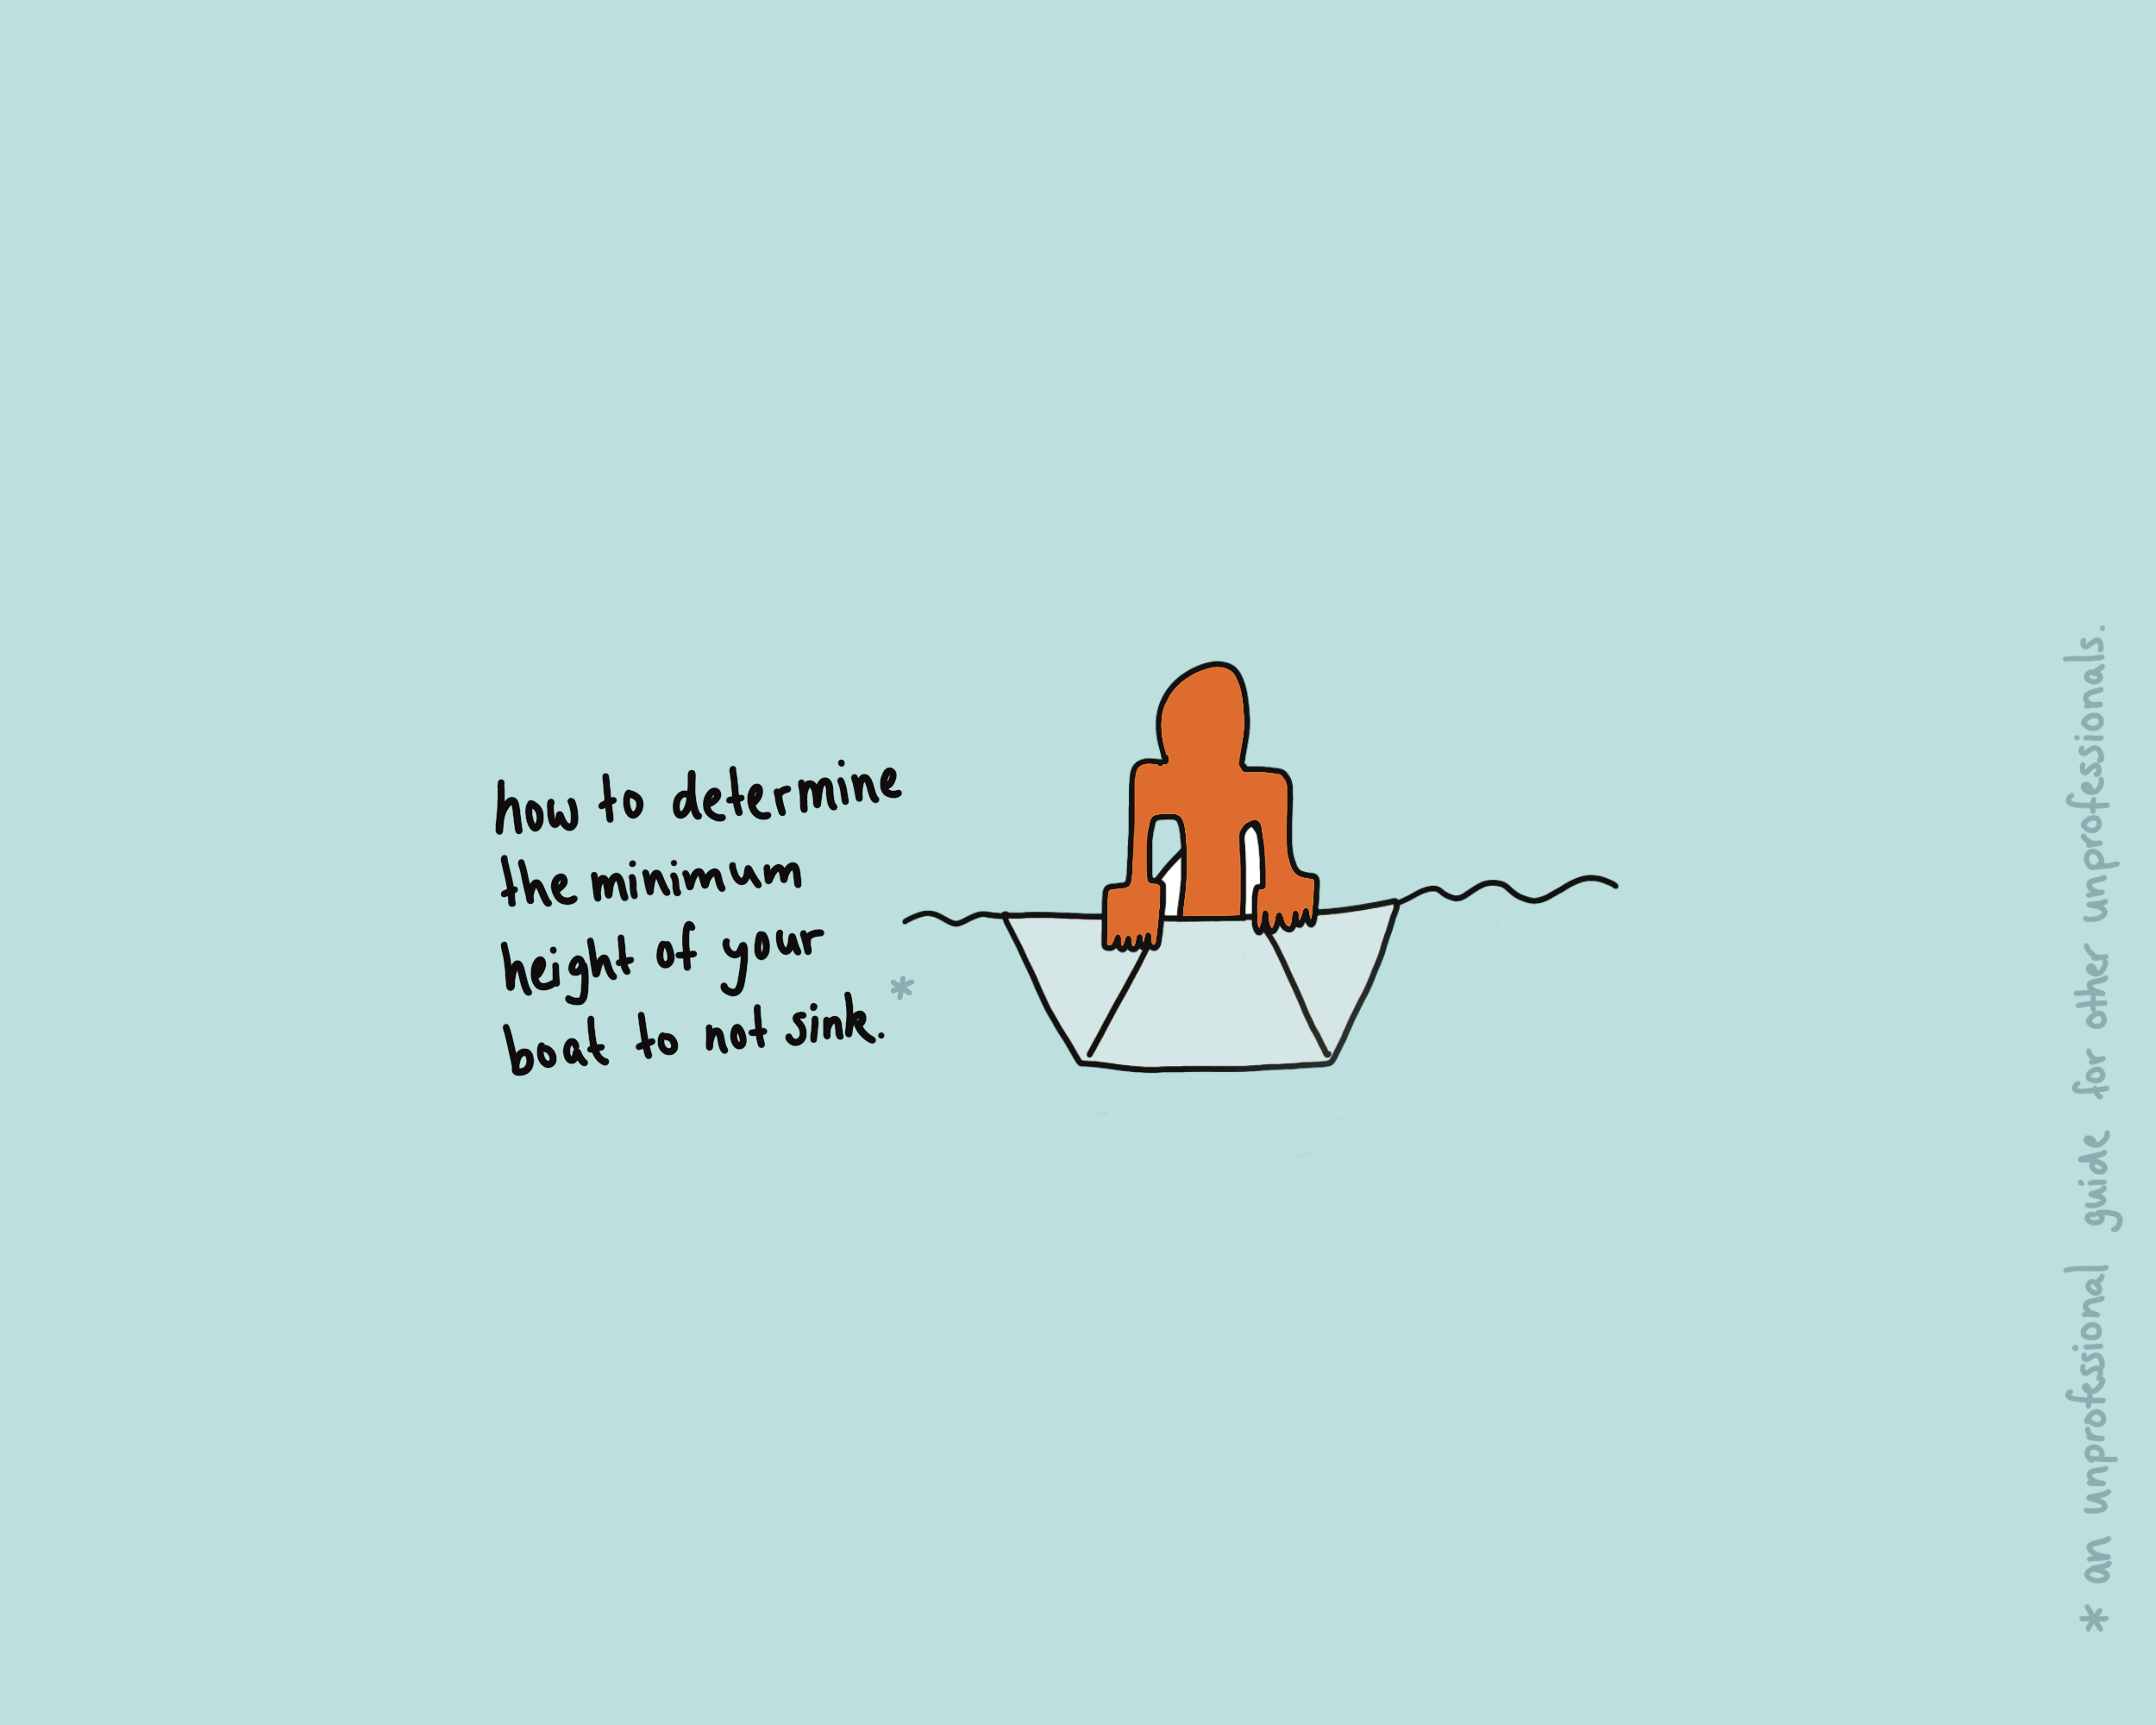 how to determine
the minimum
height of your
boat to not sink.*
* an unprofessional guide for other unprofessionals.